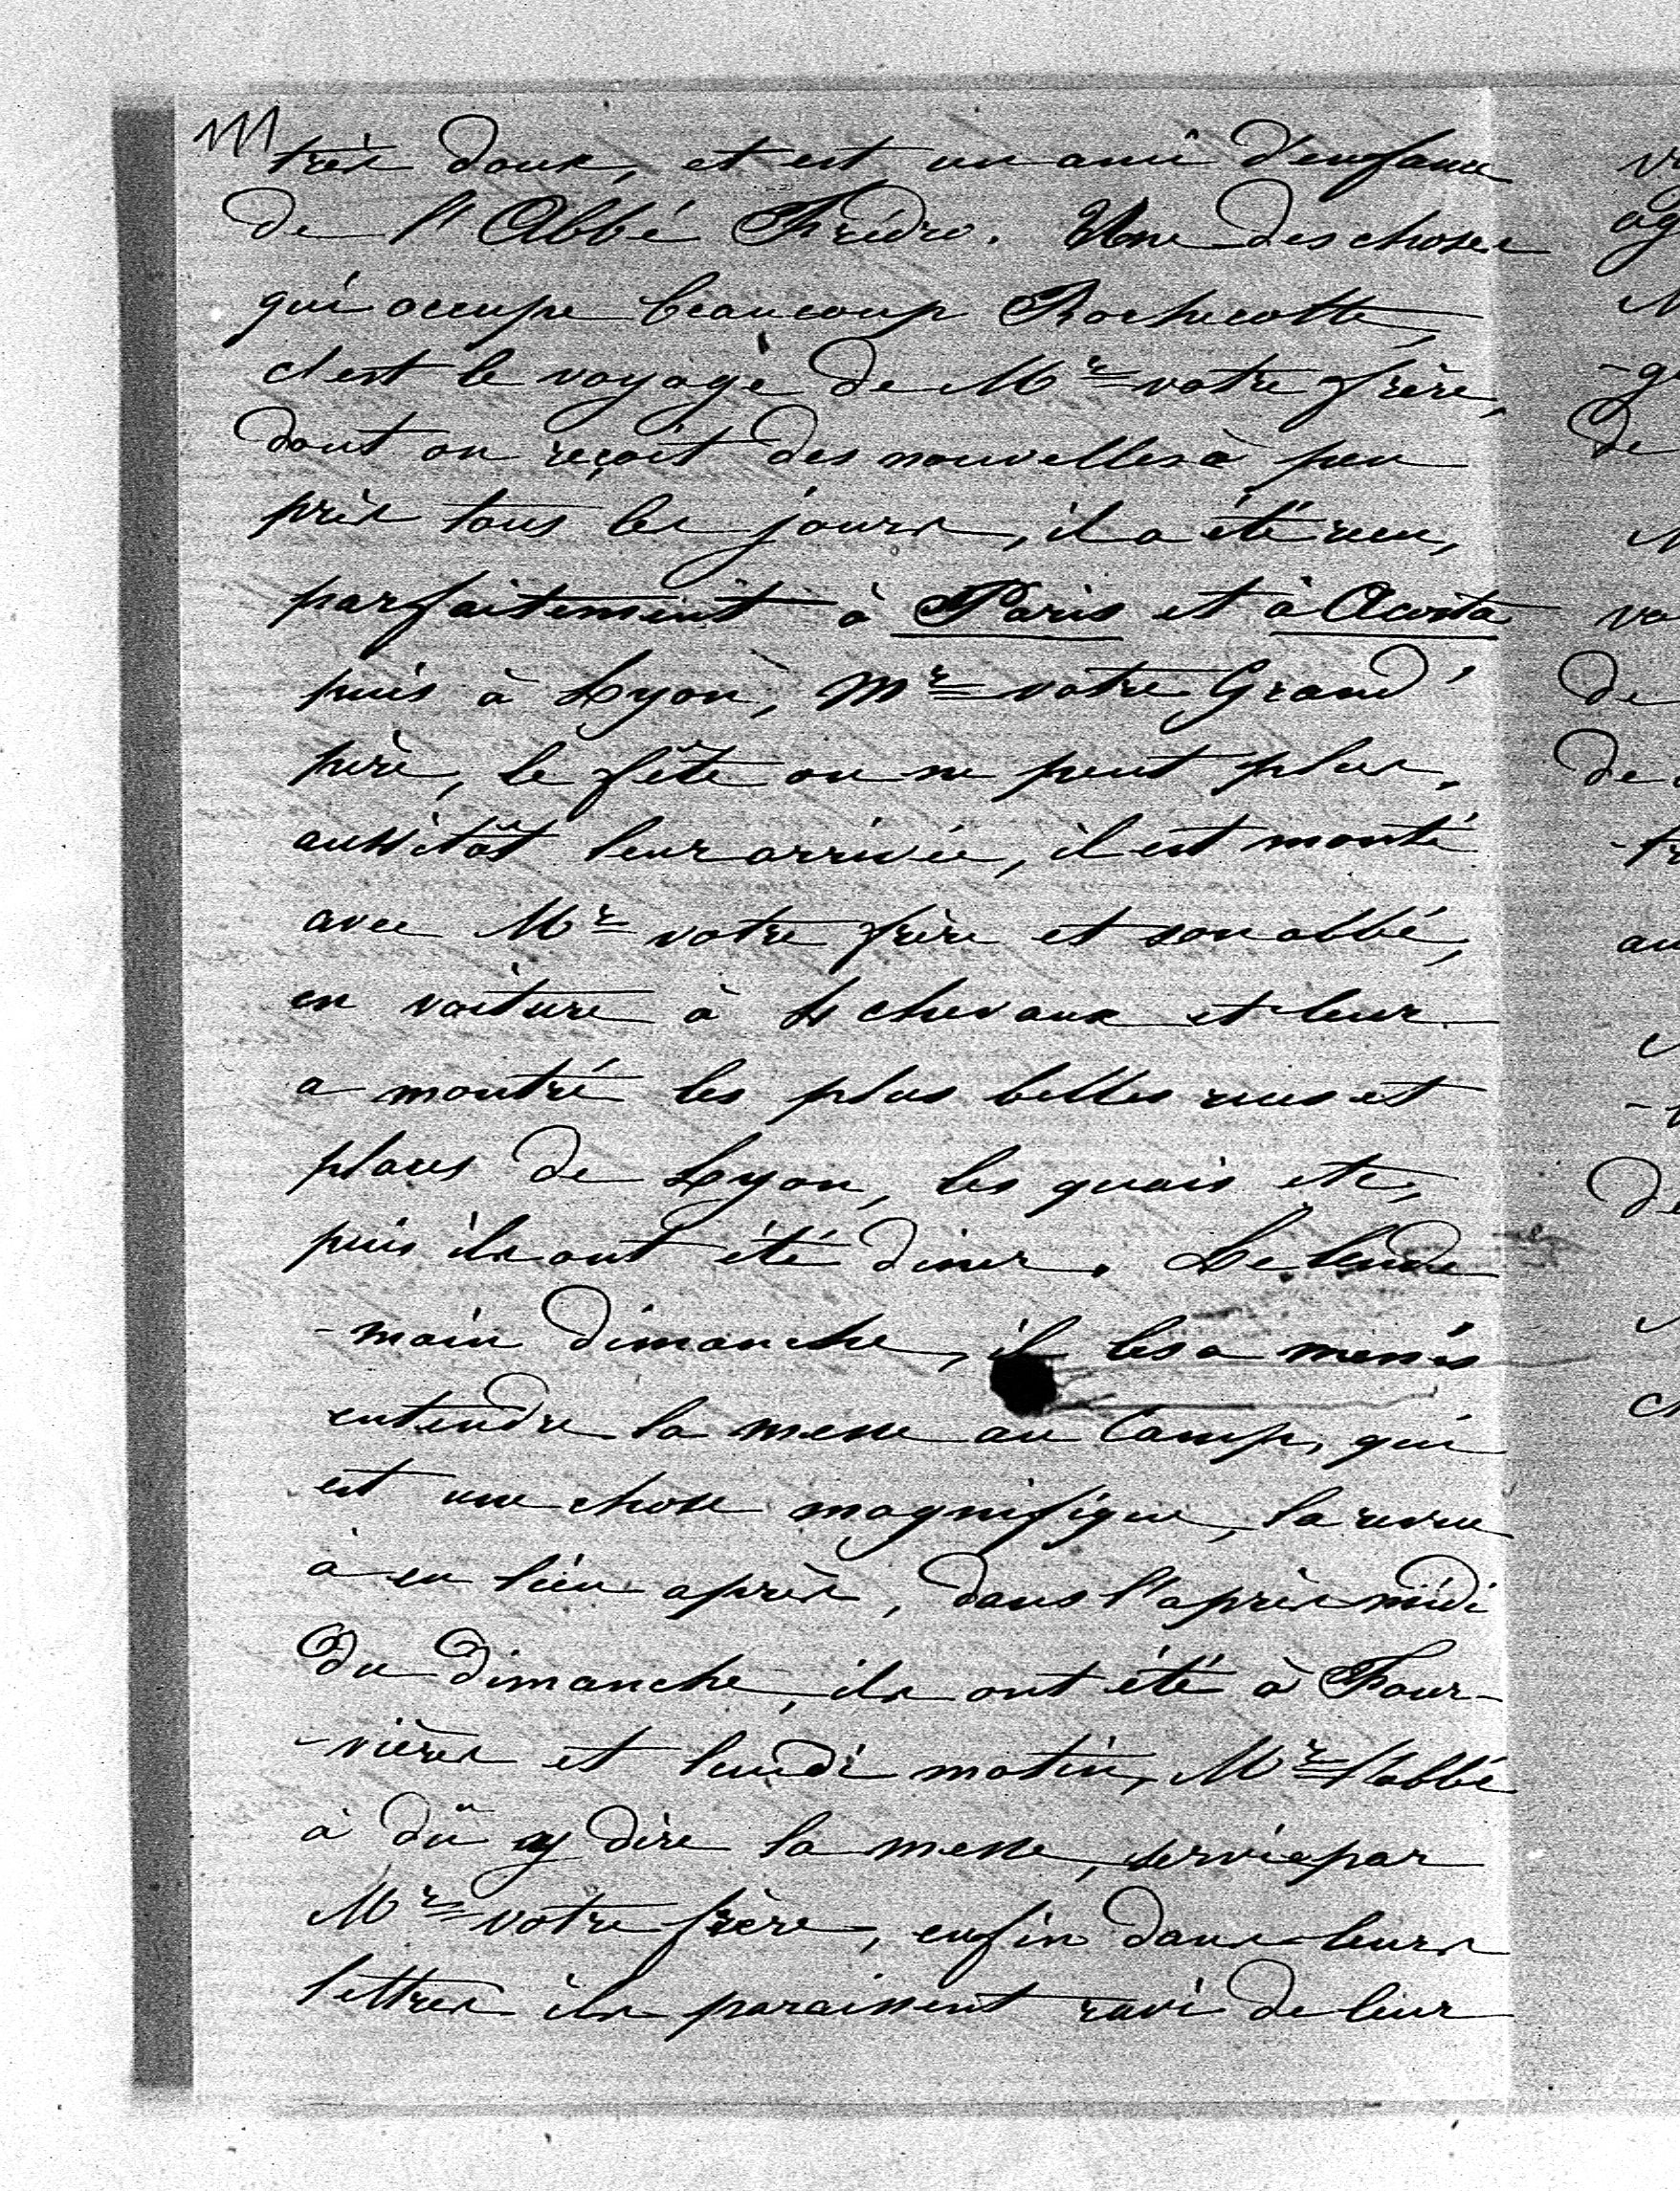 111
très doux, et est un ami d'enfance
de l'Abbé Frédro. Une des choses
qui occupe beaucoup Rochecotte,
c'est le voyage de Mr votre frère,
dont on reçoit des nouvelles à peu
près tous les jours, il a été reçu,
parfaitement à Paris et à Acosta
puis à Lyon, Mr votre Grand'
père, le fête on ne peut plus,
aussitôt leur arrivée, il est monté
avec Mr votre frère et son abbé,
en voiture à 4 chevaux et leur
a montré les plus belles rues et
places de Lyon, les quais etc,
puis ils ont été diner. Le lende
-main dimanche, il les a menés
entendre la messe au Camp, qui
est une chose magnifique, la revue
à eu lieu après, dans l'après midi
du dimanche, ils ont été à Four-
-vières et lundi matin, Mr l'abbé
à dû y dire la messe, servie par
Mr votre frère, enfin dans leurs
lettres ils paraissent ravi de leur